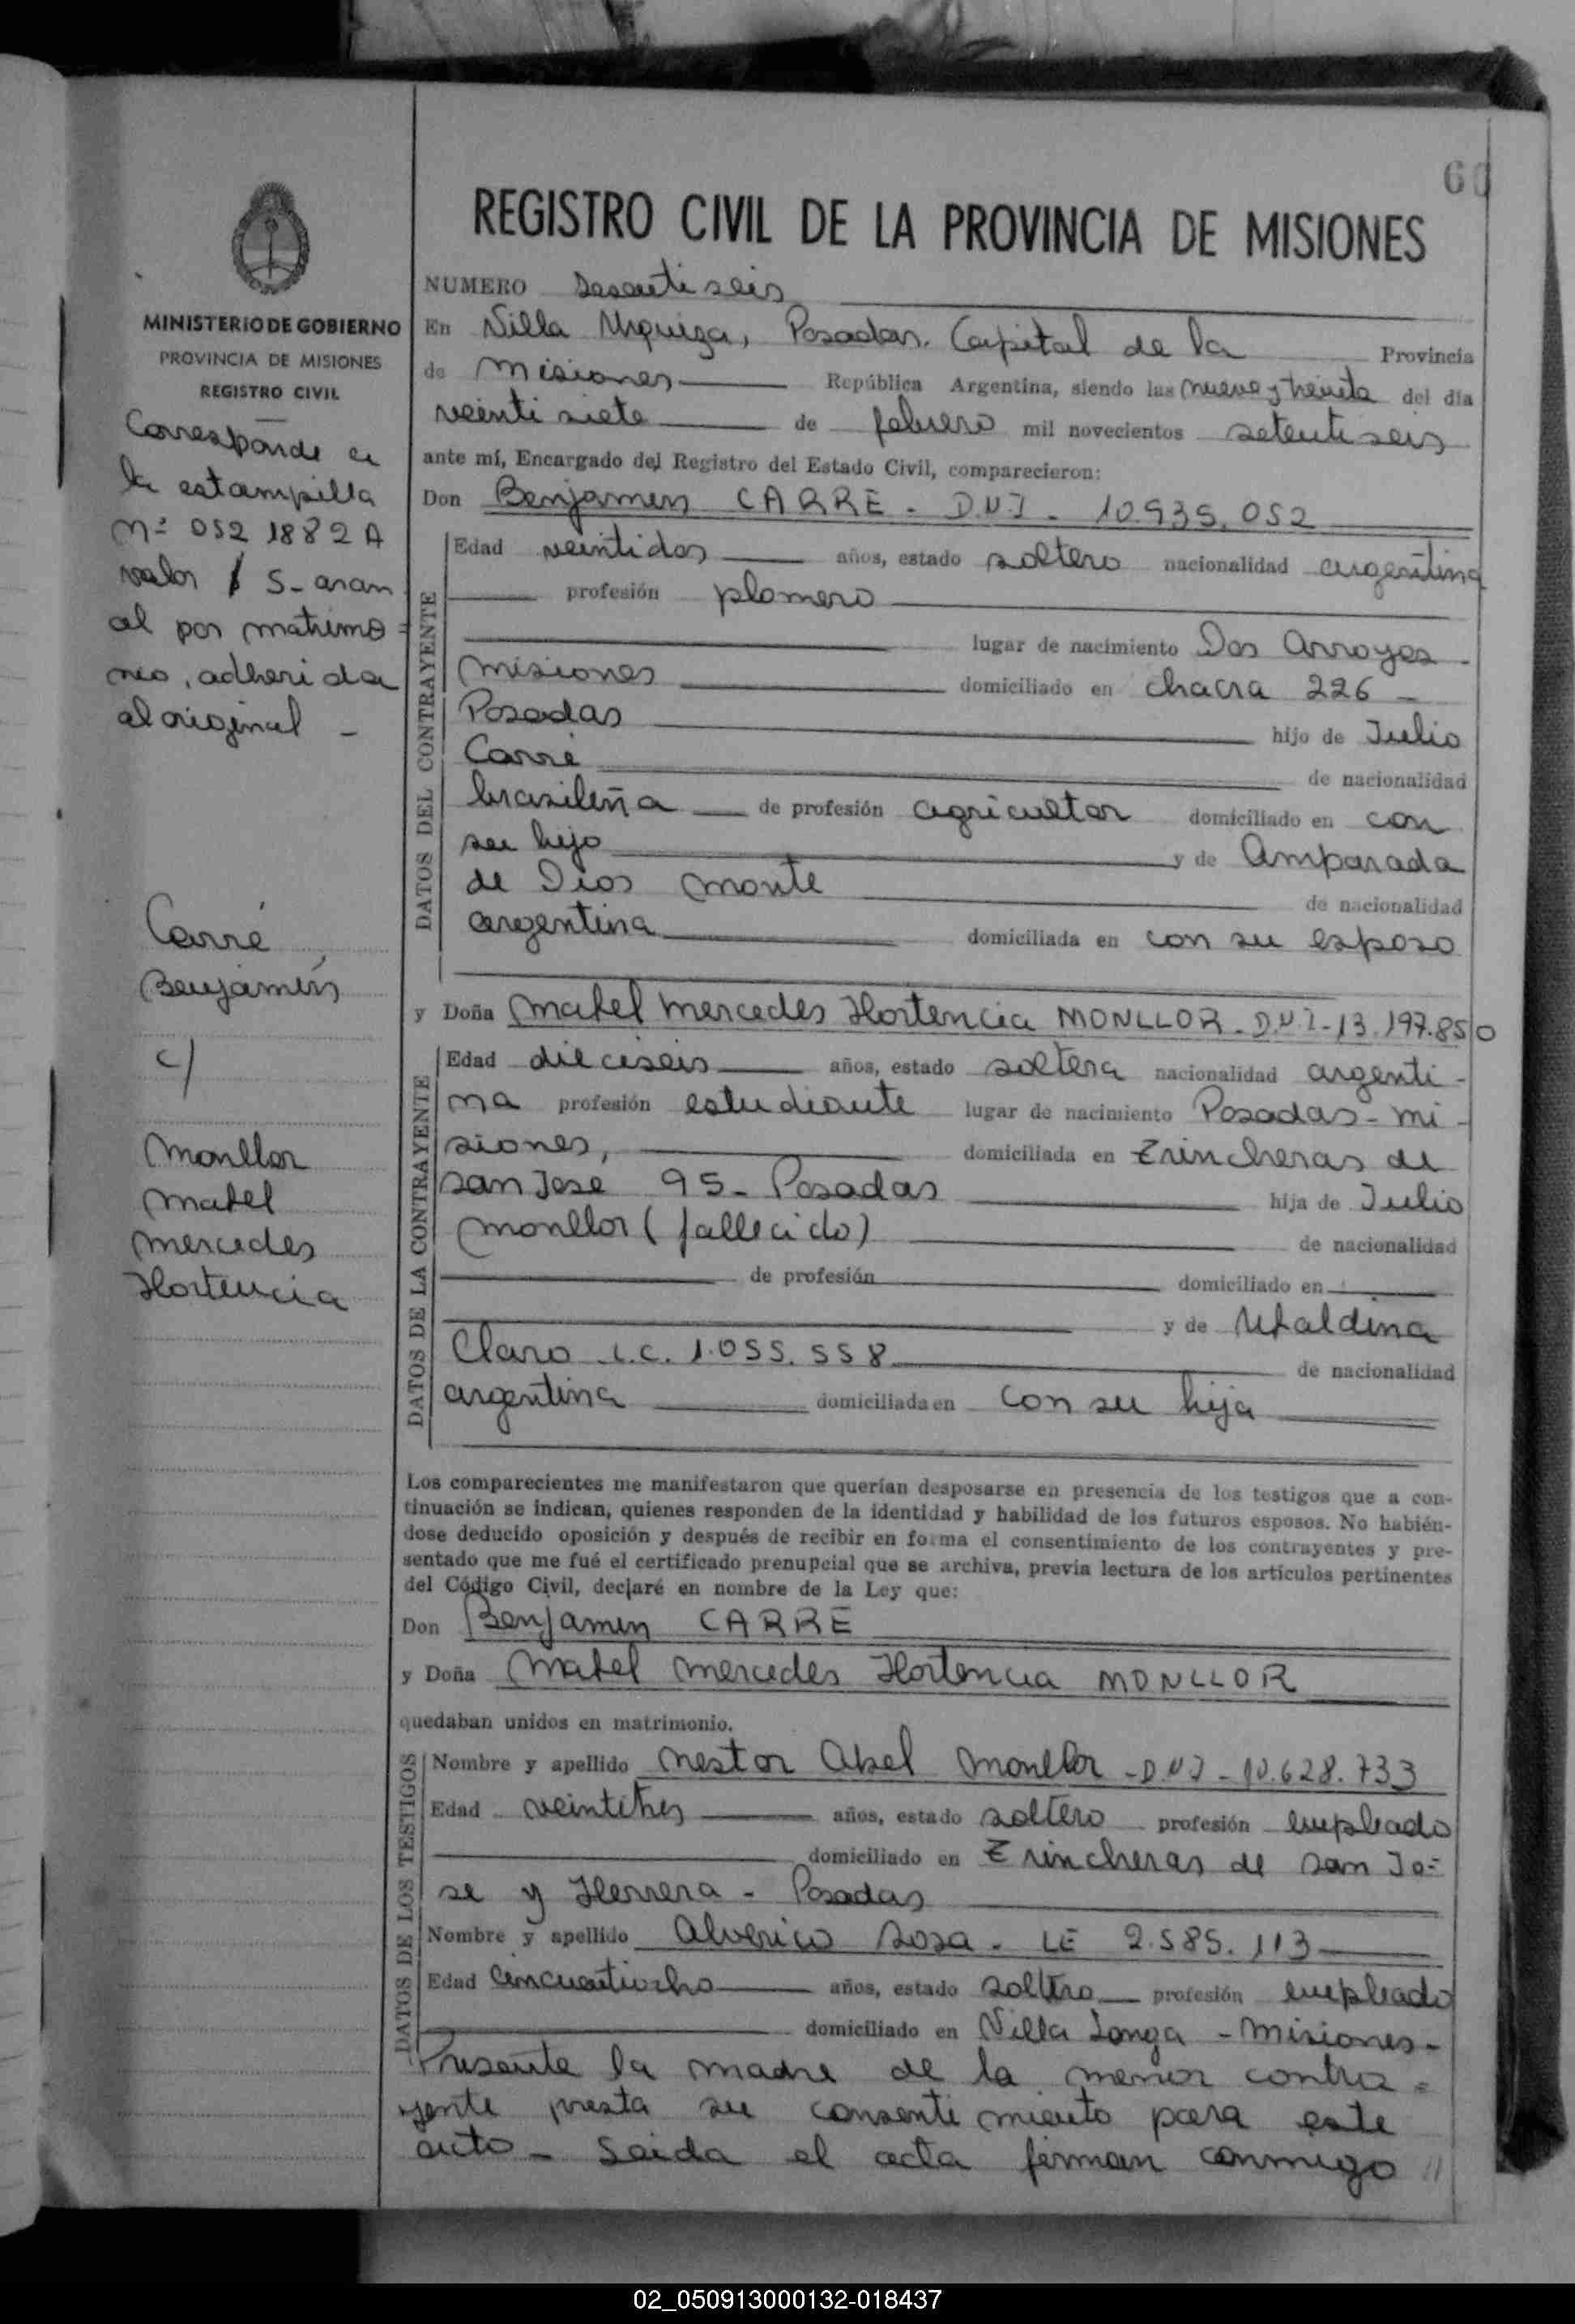 REGISTRO CIVIL DE LA PROVINCIA DE MISIONES
MINISTERIO DE GOBIERNO
PROVINCIA DE MISIONES
REGISTRO CIVIL
Corresponde a
la estampilla
Nº 052 1882 A
valor $ 5- aran
cel por matrimo=
nio, adherida
al original -
Carré,
Benjamín
c/
Monllor
Mabel
Mercedes
Hortencia
NUMERO Sesentiseis
En Villa Urquiza, Posadas. Capital de la Provincia
de Misiones República Argentina, siendo las nueve y treinta del día
veintisiete de febrero mil novecientos setentiseis
ante mí, Encargado del Registro del Estado Civil, comparecieron:
Don Benjamin CARRE - D.N.I - 10.935.052
DATOS DEL CONTRAYENTE
Edad veintidos años, estado soltero nacionalidad argentina
profesión plomero
lugar de nacimiento Dos Arroyos -
Misiones domiciliado en chacra 226 -
Posadas hijo de Julio
Carré de nacionalidad
brasileña de profesión agricultor domiciliado en con
su hijo y de Amparada
de Dios Monte de nacionalidad
argentina domiciliada en con su esposo
y Doña Mabel Mercedes Hortencia MONLLOR - D.N.I - 13.197.850
DATOS DE LA CONTRAYENTE
Edad dieciseis años, estado soltera nacionalidad argenti-
na profesión estudiante lugar de nacimiento Posadas - Mi-
siones, domiciliada en Trincheras de
San Jose 95 - Posadas hija de Julio
Monllor (fallecido) de nacionalidad
de profesión domiciliado en
y de Ubaldina
Claro L.C. 1.055.558 de nacionalidad
argentina domiciliada en con su hija
Los comparecientes me manifestaron que querían desposarse en presencia de los testigos que a con-
tinuación se indican, quienes responden de la identidad y habilidad de los futuros esposos. No habién-
dose deducido oposición y después de recibir en forma el consentimiento de los contrayentes y pre-
sentado que me fué el certificado prenupcial que se archiva, previa lectura de los artículos pertinentes
del Código Civil, declaré en nombre de la Ley que:
Don Benjamin CARRE
y Doña Mabel Mercedes Hortencia MONLLOR
quedaban unidos en matrimonio.
DATOS DE LOS TESTIGOS
Nombre y apellido Nestor Abel Monllor - D.N.I - 10.628.733
Edad veintitres años, estado soltero profesión empleado
domiciliado en Trincheras de San Jo=
se y Herrera - Posadas
Nombre y apellido Alverico Sosa - LE 2.585.113
Edad cincuentiocho años, estado soltero profesión empleado
domiciliado en Villa Longa - Misiones -
Presente la madre de la menor contra=
yente presta su consentimiento para este
acto - Leida el acta firman conmigo //
02_050913000132-018437